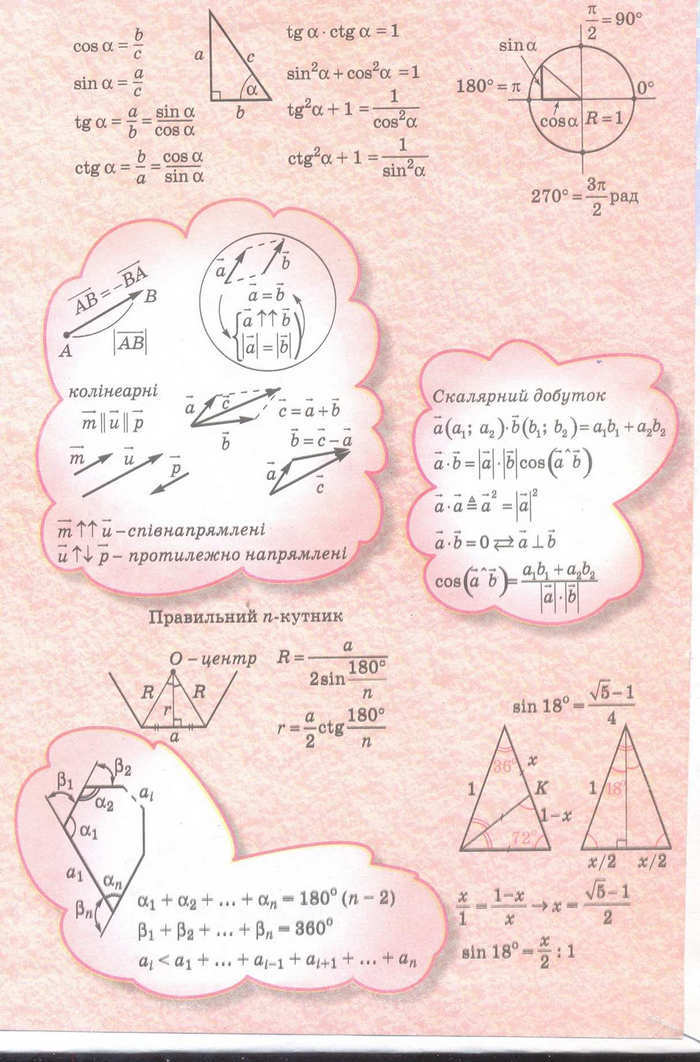 cos α = b/c
sin α = a/c
tg α = a/b = sin α/cos α
ctg α = b/a = cos α/sin α
a c α b
tg α · ctg α = 1
sin²α + cos²α = 1
tg²α + 1 = 1/cos²α
ctg²α + 1 = 1/sin²α
π/2 = 90°
sin α
180° = π 0°
cos α R = 1
270° = 3π/2 рад
A⃗B⃗ = −B⃗A⃗
B
A |A⃗B⃗|
a⃗ b⃗
a⃗ = b⃗
{a⃗ ↑↑ b⃗
|a⃗| = |b⃗|
колінеарні
m⃗ ∥ u⃗ ∥ p⃗
m⃗ u⃗ p⃗
a⃗ c⃗ b⃗
c⃗ = a⃗ + b⃗
b⃗ = c⃗ − a⃗
a⃗ c⃗
m⃗ ↑↑ u⃗ – співнапрямлені
u⃗ ↑↓ p⃗ – протилежно напрямлені
Скалярний добуток
a⃗(a₁; a₂)·b⃗(b₁; b₂) = a₁b₁ + a₂b₂
a⃗ · b⃗ = |a⃗| · |b⃗| cos(a⃗ ^ b⃗)
a⃗ · a⃗ ≜ a⃗² = |a⃗|²
a⃗ · b⃗ = 0 ⇄ a⃗ ⊥ b⃗
cos(a⃗ ^ b⃗) = (a₁b₁ + a₂b₂)/(|a⃗| · |b⃗|)
Правильний n-кутник
O – центр
R R
r
a
R = a/(2sin 180°/n)
r = a/2 ctg 180°/n
β₁ β₂
α₂ aᵢ
α₁
a₁ αₙ
βₙ
α₁ + α₂ + ... + αₙ = 180° (n − 2)
β₁ + β₂ + ... + βₙ = 360°
aᵢ < a₁ + ... + aᵢ₋₁ + aᵢ₊₁ + ... + aₙ
sin 18° = (√5 − 1)/4
36° x
1 K
1−x
72°
1 18°
x/2 x/2
x/1 = (1−x)/x → x = (√5 − 1)/2
sin 18° = x/2 : 1